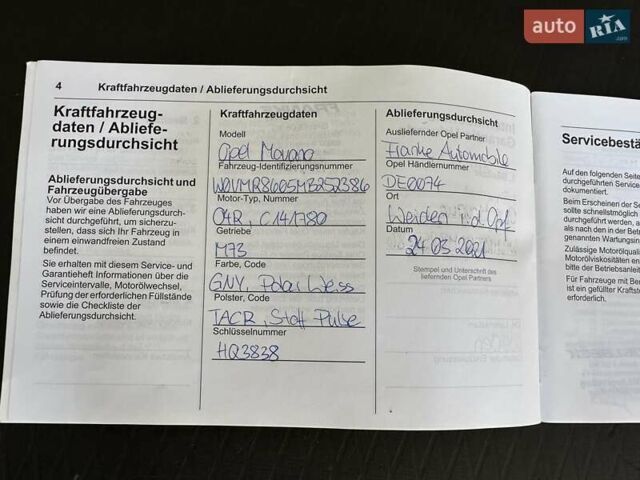 auto RIA.com
4 Kraftfahrzeugdaten / Ablieferungsdurchsicht
Kraftfahrzeug-
daten / Abliefe-
rungsdurchsicht
Ablieferungsdurchsicht und
Fahrzeugübergabe
Vor Übergabe des Fahrzeuges
haben wir eine Ablieferungsdurch-
sicht durchgeführt, um sicherzu-
stellen, dass sich Ihr Fahrzeug in
einem einwandfreien Zustand
befindet.
Sie erhalten mit diesem Service- und
Garantieheft Informationen über die
Serviceintervalle, Motorölwechsel,
Prüfung der erforderlichen Füllstände
sowie die Checkliste der
Ablieferungsdurchsicht.
Kraftfahrzeugdaten
Modell
Opel Movano
Fahrzeug-Identifizierungsnummer
W0VMR8605MB252386
Motor-Typ, Nummer
O4R, C141780
Getriebe
M73
Farbe, Code
GNY, Polar Weiss
Polster, Code
TACR, Stoff Pulse
Schlüsselnummer
HQ3838
Ablieferungsdurchsicht
Ausliefernder Opel Partner
Franke Automobile
Opel Händlernummer
DE0074
Ort
Weiden i.d. Opf
Datum
24.03.2021
Stempel und Unterschrift des
liefernden Opel Partners
Servicebestä
Auf den folgenden Seite
durchgeführten Service
dokumentiert.
Beim Erscheinen der Se
sollte schnellstmöglich
durchgeführt werden, a
als nach den in der Betr
genannten Wartungsin
Zulässige Motorölqualit
Motorölviskositäten en
bitte der Betriebsanleit
Für Fahrzeuge mit Ben
ist ein gefüllter Kraftst
erforderlich.